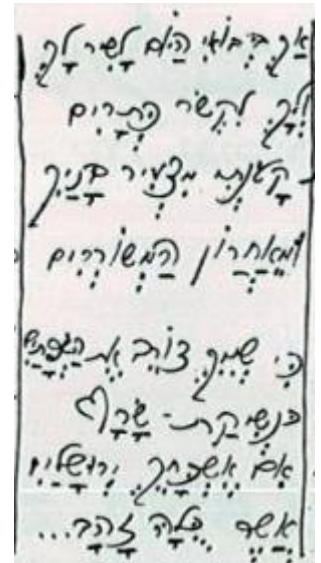 אַךְ בְּבוֹאִי הַיּוֹם לָשִׁיר לָךְ
וְלָךְ לִקְשֹׁר כְּתָרִים
קָטֹנְתִּי מִצְּעִיר בָּנַיִךְ
וּמֵאַחֲרוֹן הַמְשׁוֹרְרִים
כִּי שְׁמֵךְ צוֹרֵב אֶת הַשְּׂפָתַיִם
כִּנְשִׁיקַת-שָׂרָף
אִם אֶשְׁכָּחֵךְ יְרוּשָׁלַיִם
אֲשֶׁר כֻּלָּהּ זָהָב...